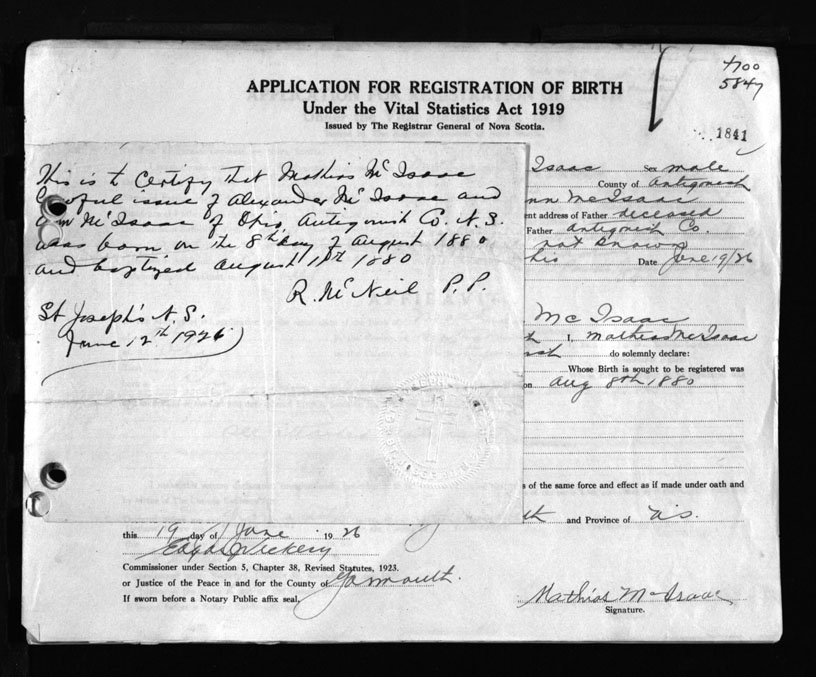 4700
5847
1841
APPLICATION FOR REGISTRATION OF BIRTH
Under the Vital Statistics Act 1919
Issued by The Registrar General of Nova Scotia.
This is to Certify that Mathias McIsaac
lawful issue of Alexander McIsaac and
Ann McIsaac of Ohio, Antigonish Co. N.S.
was born on the 8th day of August 1880
and baptized August 11th 1880
R. McNeil P.P.
St Joseph's N.S.
June 12th 1926
Isaac Sex male
County of Antigonish
Ann McIsaac
nt address of Father deceased
Father Antigonish Co.
not known
his Date June 19/26
Mc Isaac
I, Mathias McIsaac
do solemnly declare:
Whose Birth is sought to be registered was
on Aug 8th 1880
s of the same force and effect as if made under oath and
th and Province of N.S.
this 19 day of June 1926
Edgar Vickery
Commissioner under Section 5, Chapter 38, Revised Statutes, 1923.
or Justice of the Peace in and for the County of Yarmouth.
If sworn before a Notary Public affix seal,
Mathias McIsaac
Signature.